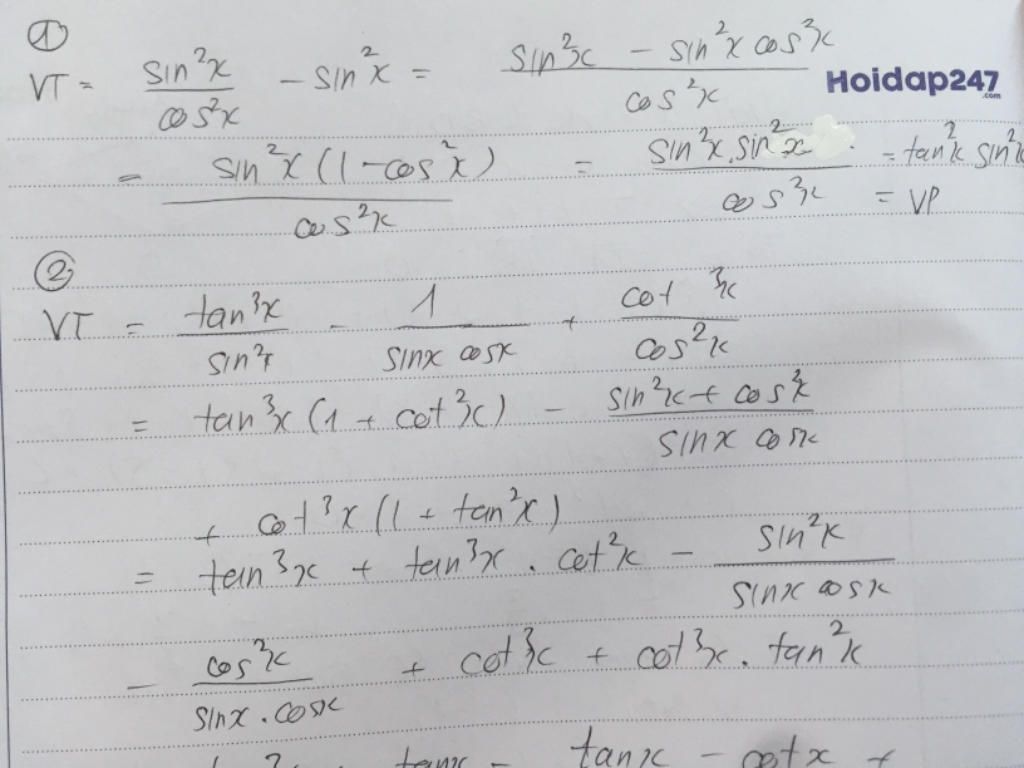 ①
VT = sin²x / cos²x − sin²x = sin²x − sin²x cos²x / cos²x
Hoidap247
.com
= sin²x (1 − cos²x) / cos²x = sin²x . sin²x / cos²x = tan²x sin²x
= VP
②
VT = tan³x / sin²x − 1 / sinx cosx + cot³x / cos²x
= tan³x (1 + cot²x) − sin²x + cos²x / sinx cosx
+ cot³x (1 + tan²x)
= tan³x + tan³x . cot²x − sin²x / sinx cosx
− cos²x / sinx . cosx + cot³x + cot³x . tan²x
tanx − tanx − cotx +